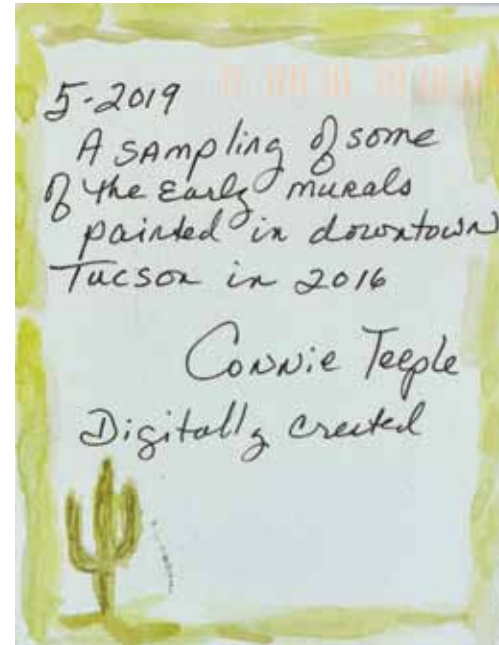 5-2019
A sampling of some
of the Early murals
painted in downtown
Tucson in 2016
Connie Teeple
Digitally created